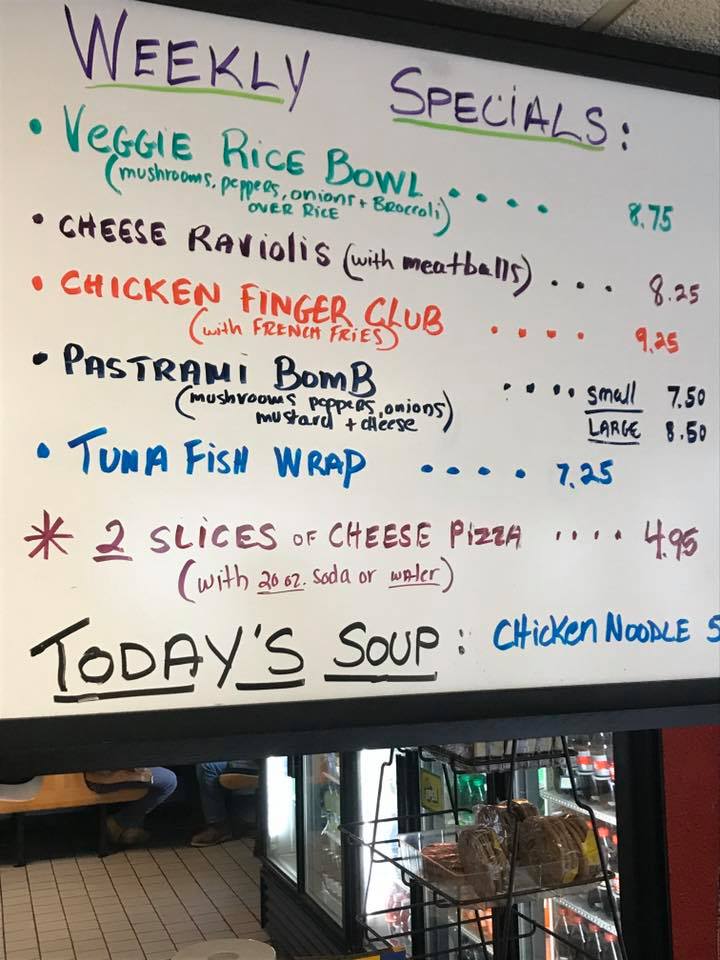 WEEKLY SPECIALS:
• VEGGIE RICE BOWL .... 8.75
(mushrooms, peppers, onions + Broccoli)
OVER RICE
• CHEESE RAViOLiS (with meatballs) ... 8.25
• CHICKEN FINGER CLUB .... 9.25
(with FRENCH FRiES)
• PASTRAMi BOMB .... Small 7.50
(mushrooms peppers, onions) LARGE 8.50
mustard + cheese
• TUNA FiSH WRAP .... 7.25
* 2 SLICES OF CHEESE PiZZA .... 4.95
(with 20 oz. Soda or water)
TODAY'S SOUP: CHicken NOODLE S